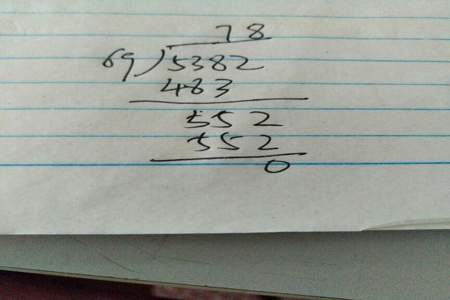 78
69)5382
483
552
552
0